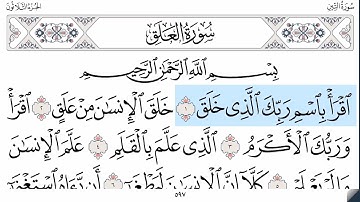 سُورَةُ التِّينِ الجُزْءُ الثَّلَاثُونَ
سُورَةُ العَلَقِ
بِسْمِ ٱللَّهِ ٱلرَّحْمَٰنِ ٱلرَّحِيمِ
ٱقْرَأْ بِٱسْمِ رَبِّكَ ٱلَّذِى خَلَقَ ١ خَلَقَ ٱلْإِنسَٰنَ مِنْ عَلَقٍ ٢ ٱقْرَأْ
وَرَبُّكَ ٱلْأَكْرَمُ ٣ ٱلَّذِى عَلَّمَ بِٱلْقَلَمِ ٤ عَلَّمَ ٱلْإِنسَٰنَ
مَا لَمْ يَعْلَمْ ٥ كَلَّآ إِنَّ ٱلْإِنسَٰنَ لَيَطْغَىٰٓ ٦ أَن رَّءَاهُ ٱسْتَغْنَىٰٓ
٥٩٧